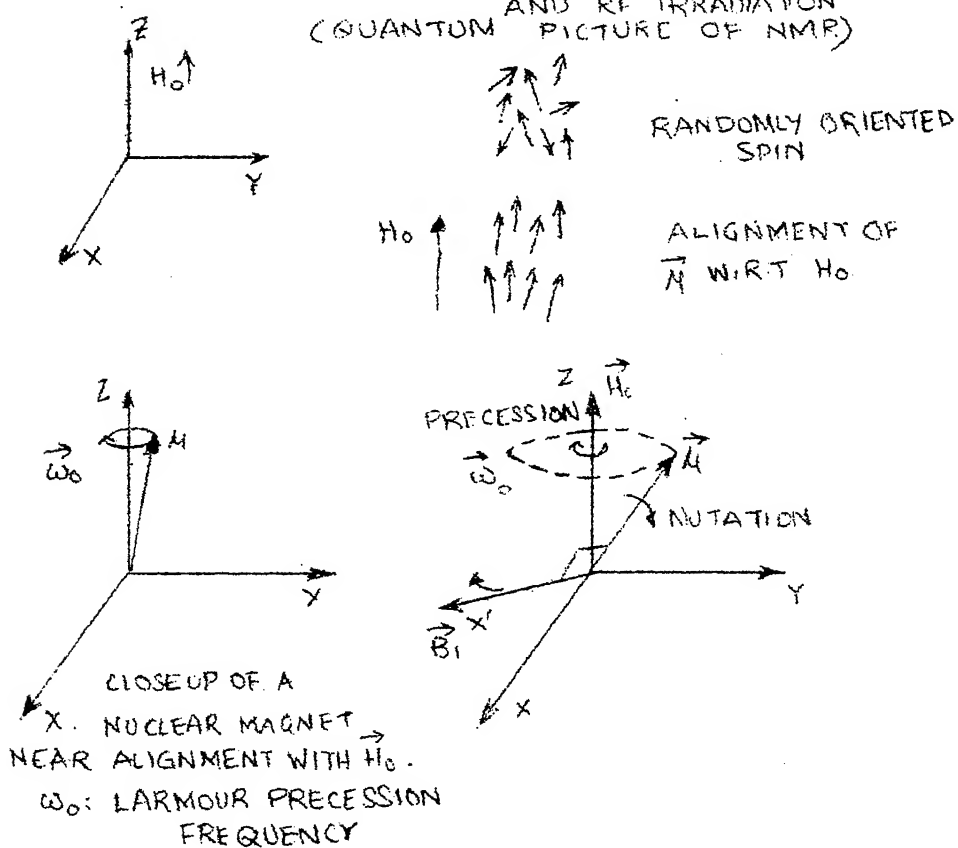 AND RF IRRADIATION
(QUANTUM PICTURE OF NMR)
Z
H₀
Y
X
RANDOMLY ORIENTED
SPIN
H₀
ALIGNMENT OF
M⃗ W.R.T H₀
Z
ω⃗₀
M
Y
X.
CLOSEUP OF A
NUCLEAR MAGNET
NEAR ALIGNMENT WITH H⃗₀.
ω₀: LARMOUR PRECESSION
FREQUENCY
Z H⃗₀
PRECESSION
ω⃗₀
M⃗
NUTATION
Y
X'
B⃗₁
X